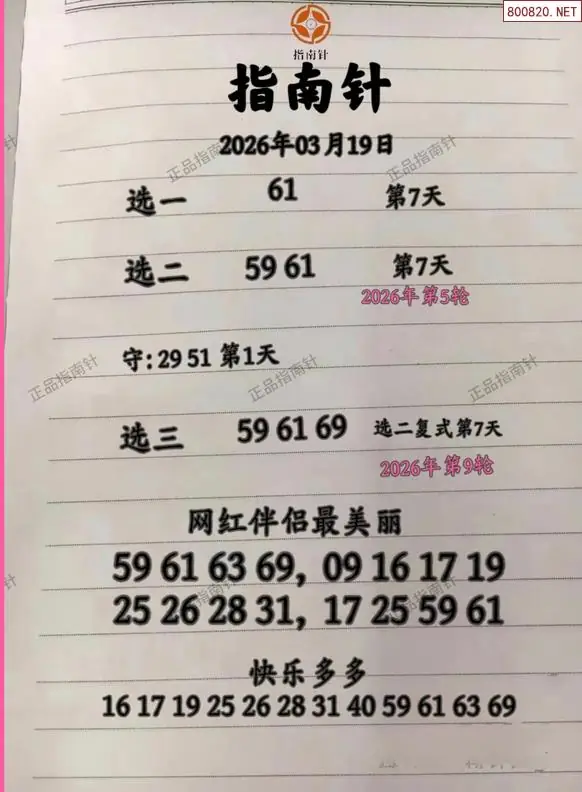 800820.NET
指南针
指南针
2026年03月19日
选一 61 第7天
选二 59 61 第7天
2026年第5轮
守:29 51 第1天
选三 59 61 69 选二复式第7天
2026年第9轮
网红伴侣最美丽
59 61 63 69, 09 16 17 19
25 26 28 31, 17 25 59 61
快乐多多
16 17 19 25 26 28 31 40 59 61 63 69
正品指南针
正品指南针
正品指南针
正品指南针
正品指南针